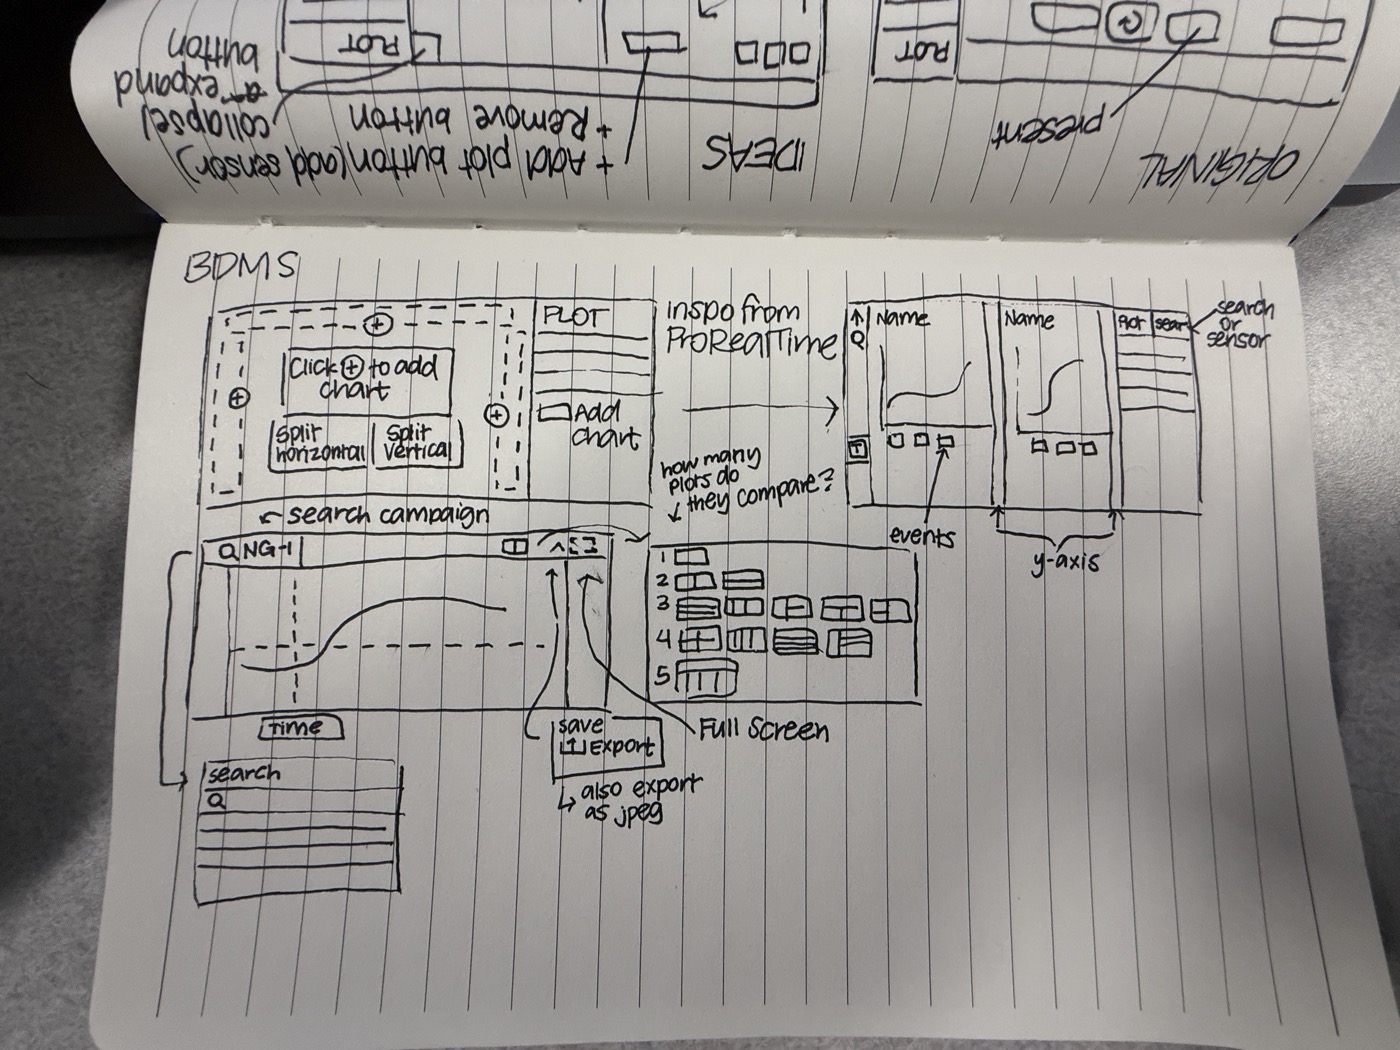 ORIGINAL
present
PLOT
IDEAS
+ Add plot button (add sensor)
+ Remove button
collapse/
expand
button
PLOT
BDMS
Click + to add
chart
Split
horizontal
Split
vertical
PLOT
Add
chart
inspo from
ProRealTime
how many
plots do
they compare?
Name
Name
Plot
sear
search
or
sensor
events
y-axis
search campaign
Q NG-1
Time
search
Q
save
Export
also export
as jpeg
Full screen
1
2
3
4
5